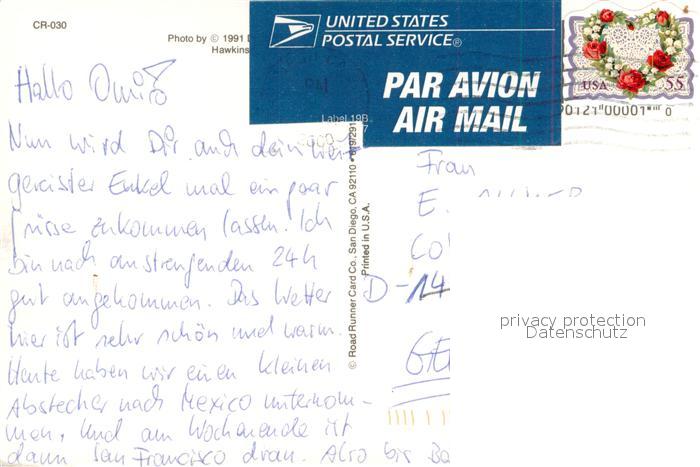 CR-030
Photo by © 1991 D
Hawkins
UNITED STATES
POSTAL SERVICE®
PAR AVION
AIR MAIL
Label 19B
USA 55
90121"00001" 0
Hallo
Nun wird Dir auch dein weit
gereister Enkel mal ein paar
Grüsse zukommen lassen. Ich
bin nach anstrengenden 24h
gut angekommen. Das Wetter
hier ist sehr schön und warm.
Heute haben wir einen kleinen
Abstecher nach Mexico unternom-
men, und am Wochenende ist
dann San Francisco dran. Also bis Ba
© Road Runner Card Co., San Diego, CA 92110 • 619/291
Printed in U.S.A.
Frau
E.
Co
D-14
GE
privacy protection
Datenschutz